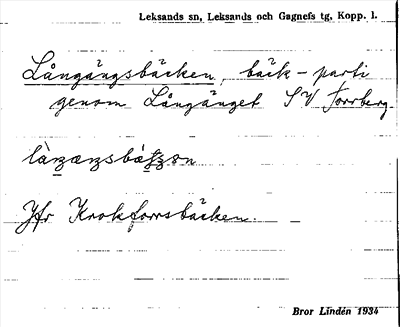 Leksands sn, Leksands och Gagnefs tg, Kopp. l.
Långängsbäcken, bäck-parti
genom Långänget SV Torrberg.
Jfr Krokforsbäcken.
Bror Lindén 1934